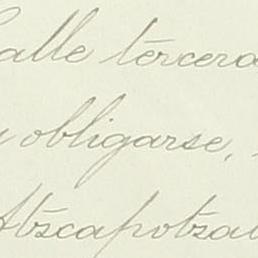 Calle tercera
obligarse,
Atzcapotzal